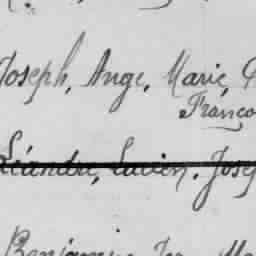 Joseph, Ange, Marie,
Franço
Léandre, Lucien, Jose
Benjamin